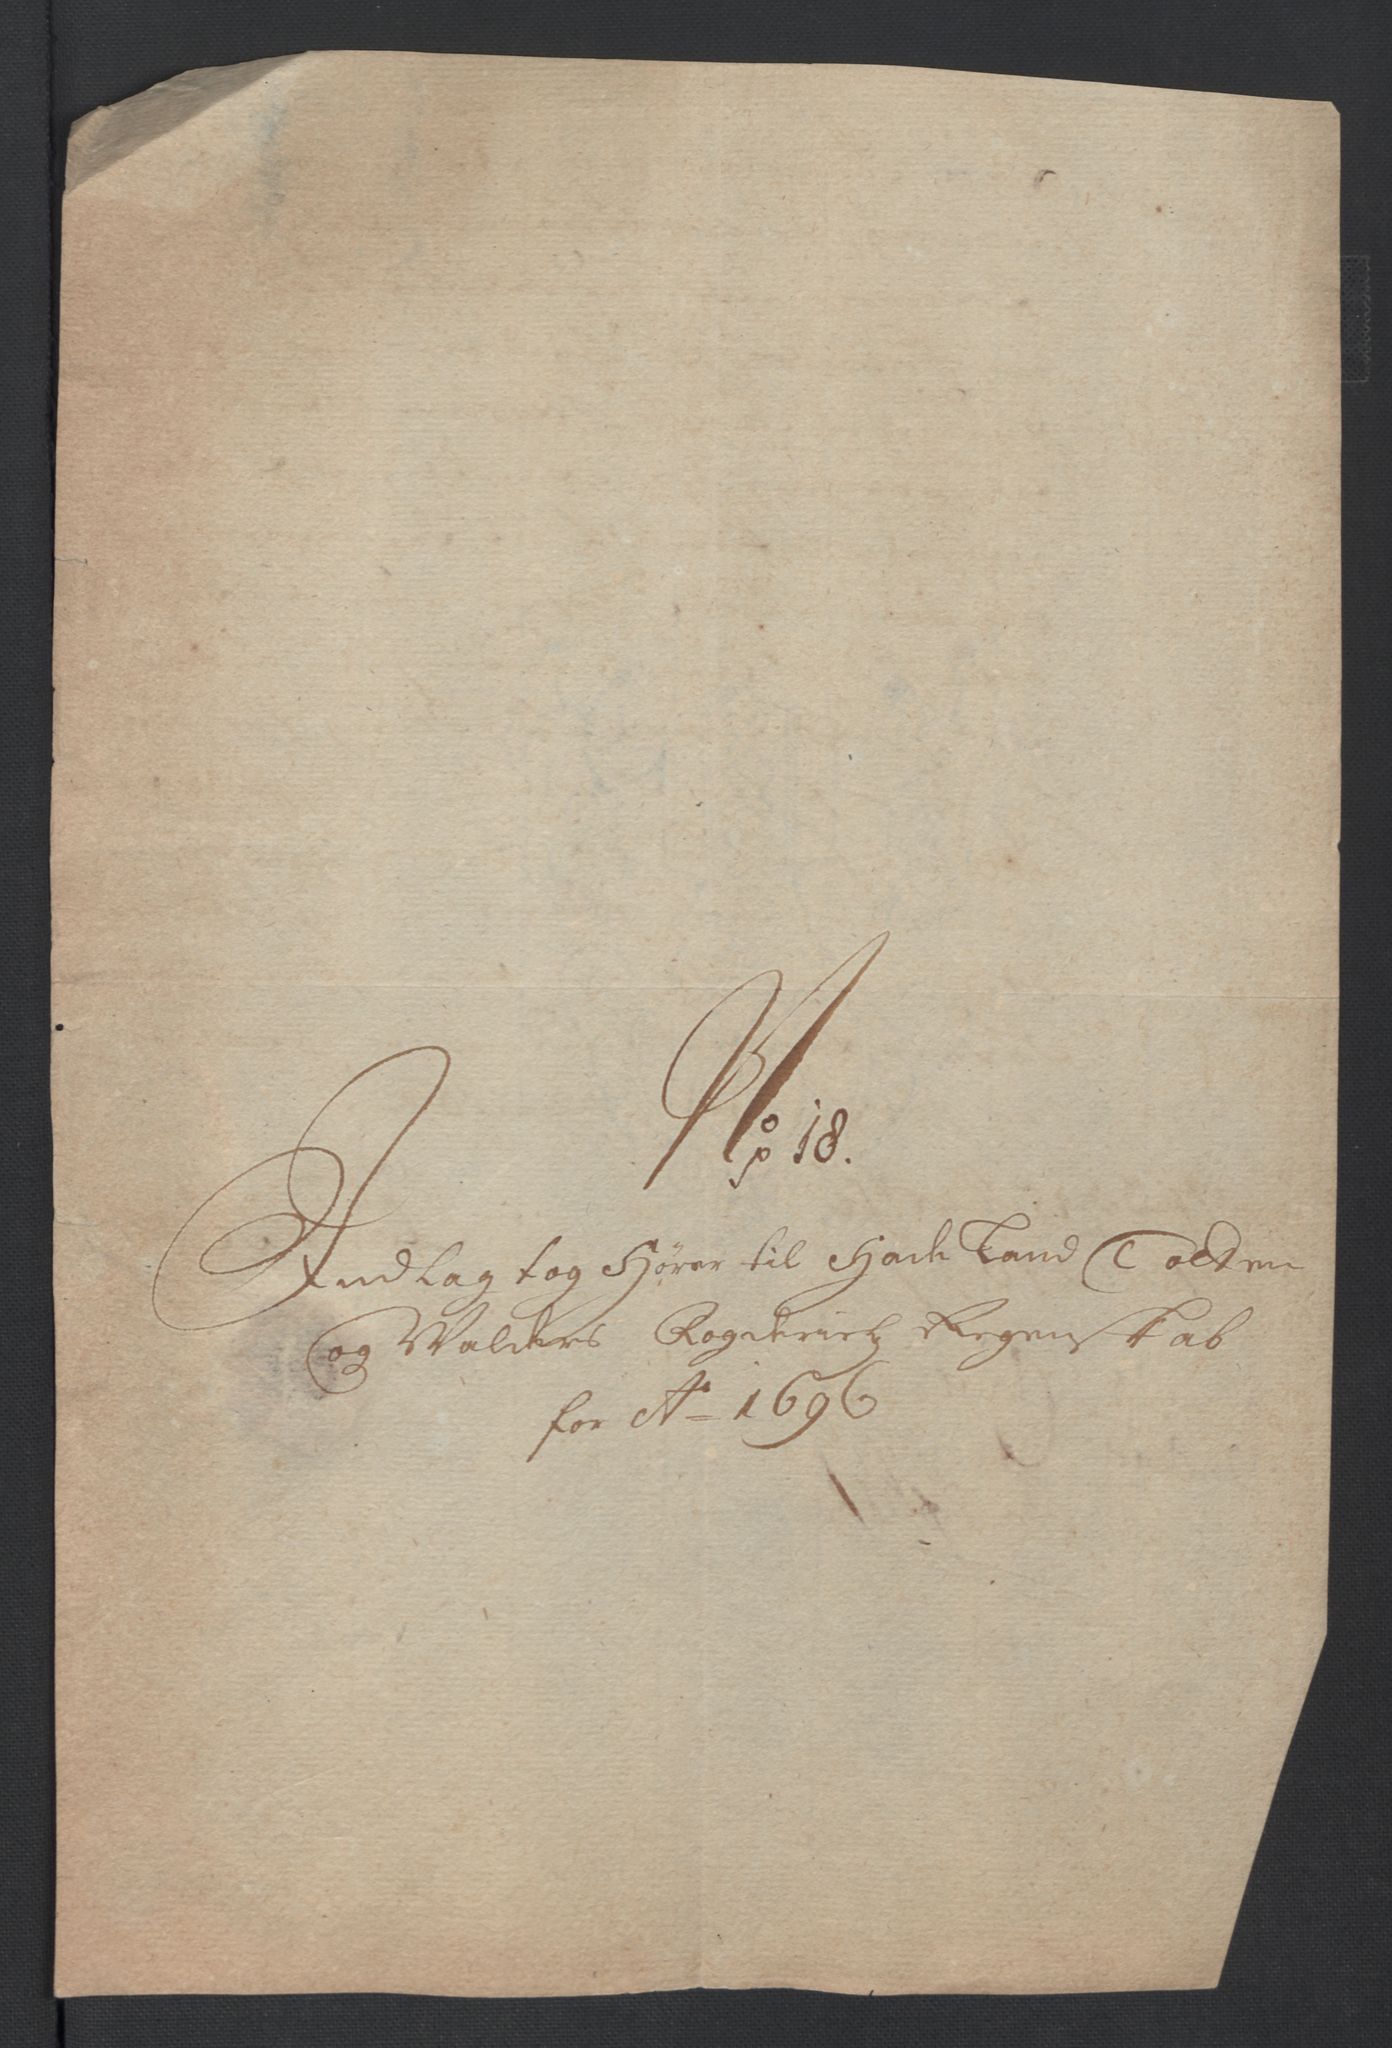 No 18.
Indlag tog Hører til Hade Land Totten
og Walders Fogderietz Regenskab
for Ao 1696